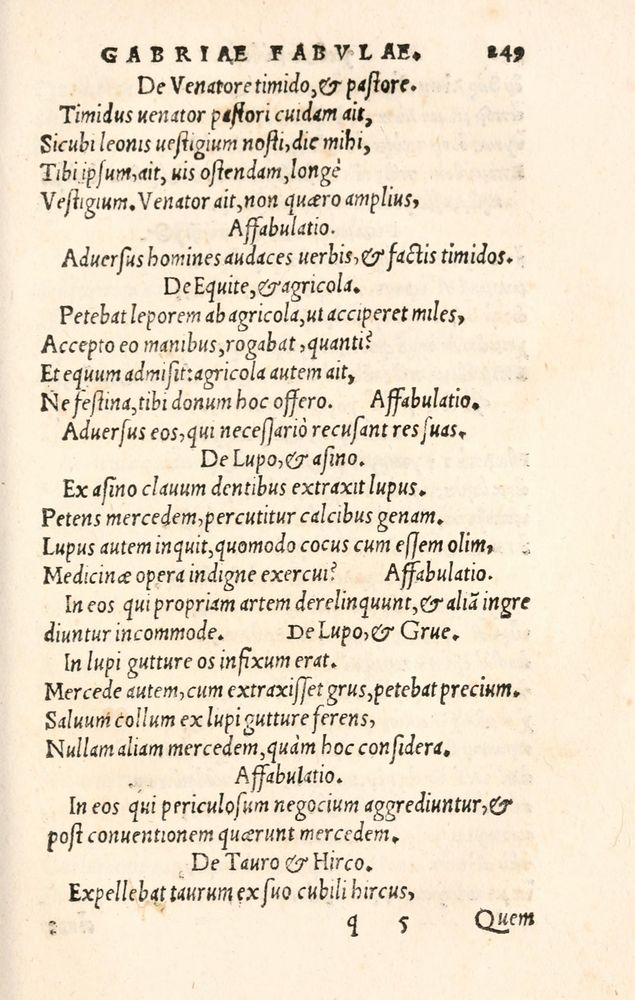 GABRIAE FABVLAE. 249
De Venatore timido, & pastore.
Timidus uenator pastori cuidam ait,
Sicubi leonis uestigium nosti, dic mihi,
Tibi ipsum, ait, uis ostendam, longè
Vestigium. Venator ait, non quæro amplius,
Affabulatio.
Aduersus homines audaces uerbis, & factis timidos.
De Equite, & agricola.
Petebat leporem ab agricola, ut acciperet miles,
Accepto eo manibus, rogabat, quanti?
Et equum admisit: agricola autem ait,
Ne festina, tibi donum hoc offero. Affabulatio.
Aduersus eos, qui necessariò recusant res suas.
De Lupo, & asino.
Ex asino clauum dentibus extraxit lupus.
Petens mercedem, percutitur calcibus genam.
Lupus autem inquit, quomodo cocus cum essem olim,
Medicinæ opera indigne exercui? Affabulatio.
In eos qui propriam artem derelinquunt, & aliã ingre
diuntur incommode. De Lupo, & Grue.
In lupi gutture os infixum erat.
Mercede autem, cum extraxisset grus, petebat precium.
Saluum collum ex lupi gutture ferens,
Nullam aliam mercedem, quàm hoc considera.
Affabulatio.
In eos qui periculosum negocium aggrediuntur, &
post conuentionem quærunt mercedem.
De Tauro & Hirco.
Expellebat taurum ex suo cubili hircus,
q 5 Quem